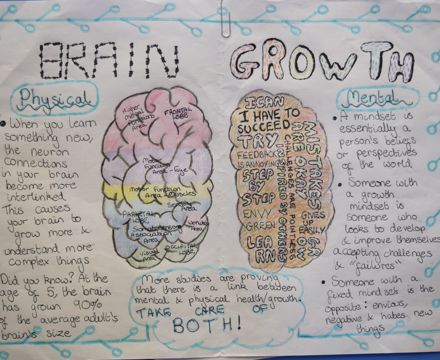 BRAIN GROWTH
Physical
• When you learn
something new,
the neuron
connections
in your brain
become more
interlinked.
This causes
your brain to
"grow more &
understand more
complex things
Did you know? At the
age of 5, the brain
has grown 90%
of the average adult's
brain's size
Higher
Mental
Area
FRONTAL
LOBE
Motor Function
Area
PARIETAL
Somatosensory
Association
Area
OCCIPITAL
LOBE
I CAN
I HAVE TO
SUCCEED
TRY
FEEDBACK
IS ANNOYING
STEP
BY
STEP
ENVY
GREEN
LEARN
MISTAKES
ARE OKAY
CHALLENGES ARE POSITIVE
GIVES
UP
EASILY
GROW
More studies are proving
that there is a link between
mental & physical health/growth.
TAKE CARE OF
BOTH!
Mental
• A mindset is
essentially a
person's beliefs
or perspectives
of the world
• Someone with
a growth
mindset is
someone who
looks to develop
& improve themselves
accepting challenges
& "failures"
• Someone with a
fixed mindset is the
opposite: envious,
negative & hates new
things